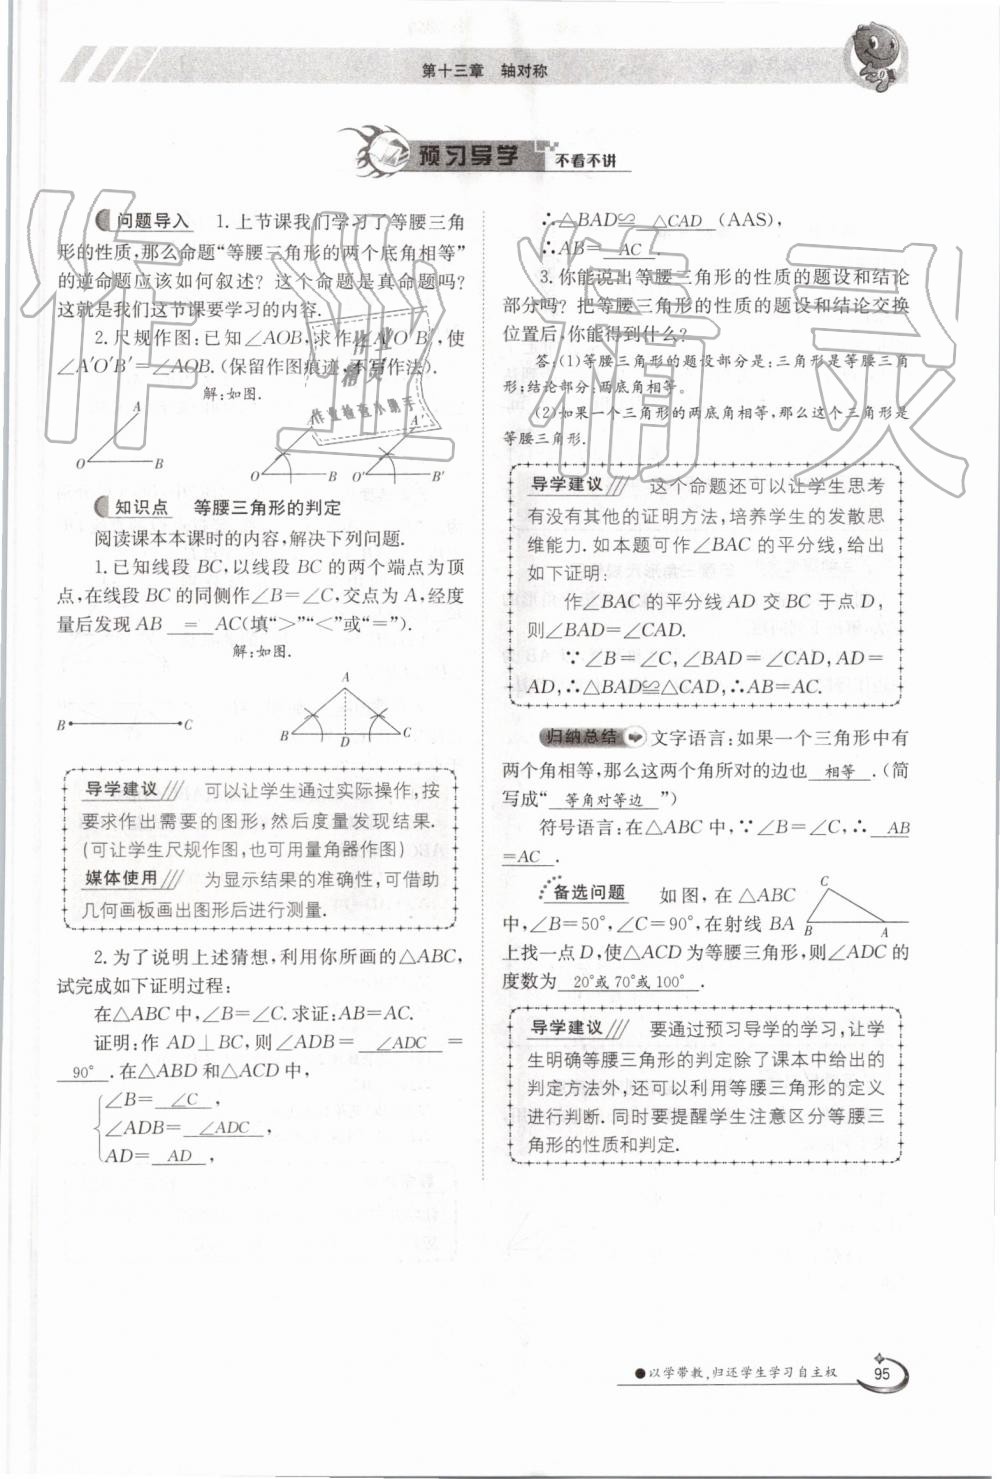 第十三章 轴对称
预习导学 不看不讲
问题导入 1.上节课我们学习了等腰三角
形的性质,那么命题“等腰三角形的两个底角相等”
的逆命题应该如何叙述?这个命题是真命题吗?
这就是我们这节课要学习的内容.
2.尺规作图:已知∠AOB,求作∠A′O′B′,使
∠A′O′B′=∠AOB.(保留作图痕迹,不写作法).
解:如图.
A
O B
A
O B
A′
O′ B′
知识点 等腰三角形的判定
阅读课本本课时的内容,解决下列问题.
1.已知线段 BC,以线段 BC 的两个端点为顶
点,在线段 BC 的同侧作∠B=∠C,交点为 A,经度
量后发现 AB = AC(填“>”“<”或“=”).
解:如图.
B C
A
B D C
导学建议 可以让学生通过实际操作,按
要求作出需要的图形,然后度量发现结果.
(可让学生尺规作图,也可用量角器作图)
媒体使用 为显示结果的准确性,可借助
几何画板画出图形后进行测量.
2.为了说明上述猜想,利用你所画的△ABC,
试完成如下证明过程:
在△ABC 中,∠B=∠C.求证:AB=AC.
证明:作 AD⊥BC,则∠ADB= ∠ADC =
90° .在△ABD 和△ACD 中,
∠B= ∠C ,
∠ADB= ∠ADC ,
AD= AD ,
∴△BAD≌ △CAD (AAS),
∴AB= AC .
3.你能说出等腰三角形的性质的题设和结论
部分吗?把等腰三角形的性质的题设和结论交换
位置后,你能得到什么?
答:(1)等腰三角形的题设部分是:三角形是等腰三角
形;结论部分:两底角相等。
(2)如果一个三角形的两底角相等,那么这个三角形是
等腰三角形.
导学建议 这个命题还可以让学生思考
有没有其他的证明方法,培养学生的发散思
维能力.如本题可作∠BAC 的平分线,给出
如下证明:
作∠BAC 的平分线 AD 交 BC 于点 D,
则∠BAD=∠CAD.
∵∠B=∠C,∠BAD=∠CAD,AD=
AD,∴△BAD≌△CAD,∴AB=AC.
归纳总结 文字语言:如果一个三角形中有
两个角相等,那么这两个角所对的边也 相等 .(简
写成“ 等角对等边 ”)
符号语言:在△ABC 中,∵∠B=∠C,∴ AB
=AC .
备选问题 如图,在△ABC
中,∠B=50°,∠C=90°,在射线 BA
上找一点 D,使△ACD 为等腰三角形,则∠ADC 的
度数为 20°或70°或100° .
C
B A
导学建议 要通过预习导学的学习,让学
生明确等腰三角形的判定除了课本中给出的
判定方法外,还可以利用等腰三角形的定义
进行判断.同时要提醒学生注意区分等腰三
角形的性质和判定.
●以学带教,归还学生学习自主权
95
作业精灵
作业
精灵
作业检查小助手